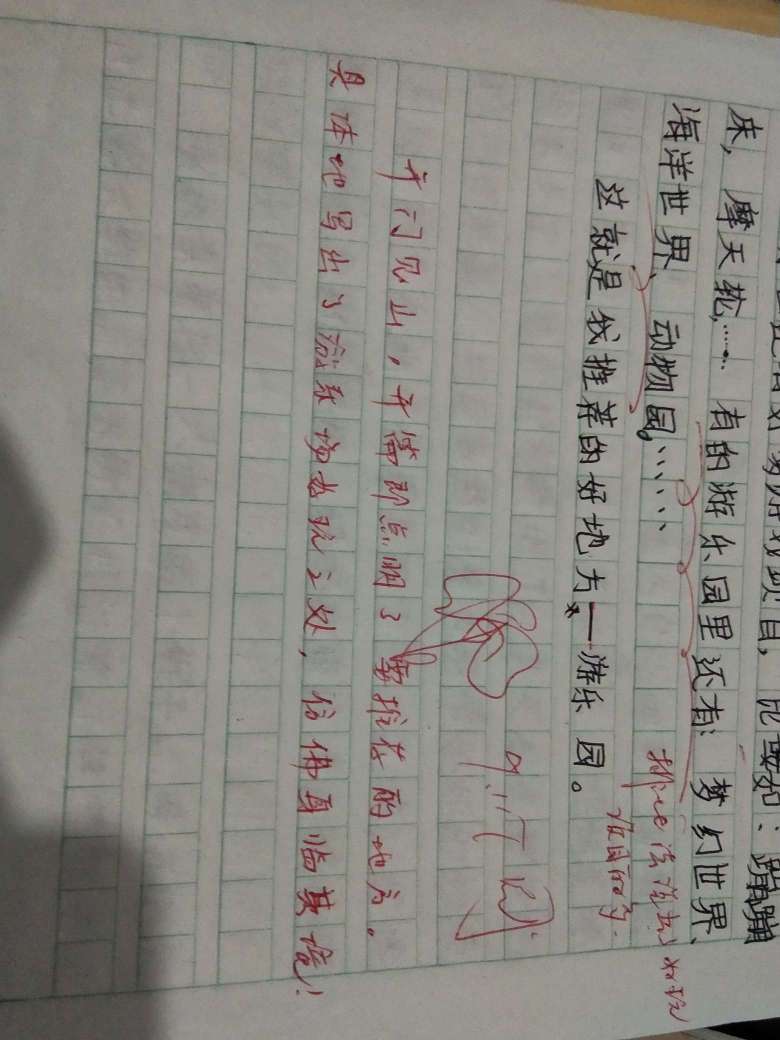 项目，比如：蹦蹦
床，摩天轮，…… 有的游乐园里还有：梦幻世界、
海洋世界、动物园。……
排比法说出了好玩
项目的多。
这就是我推荐的好地方—游乐园。
开门见山，开篇即点明了要推荐的地方。
具体地写出了游乐场好玩之处，仿佛身临其境！